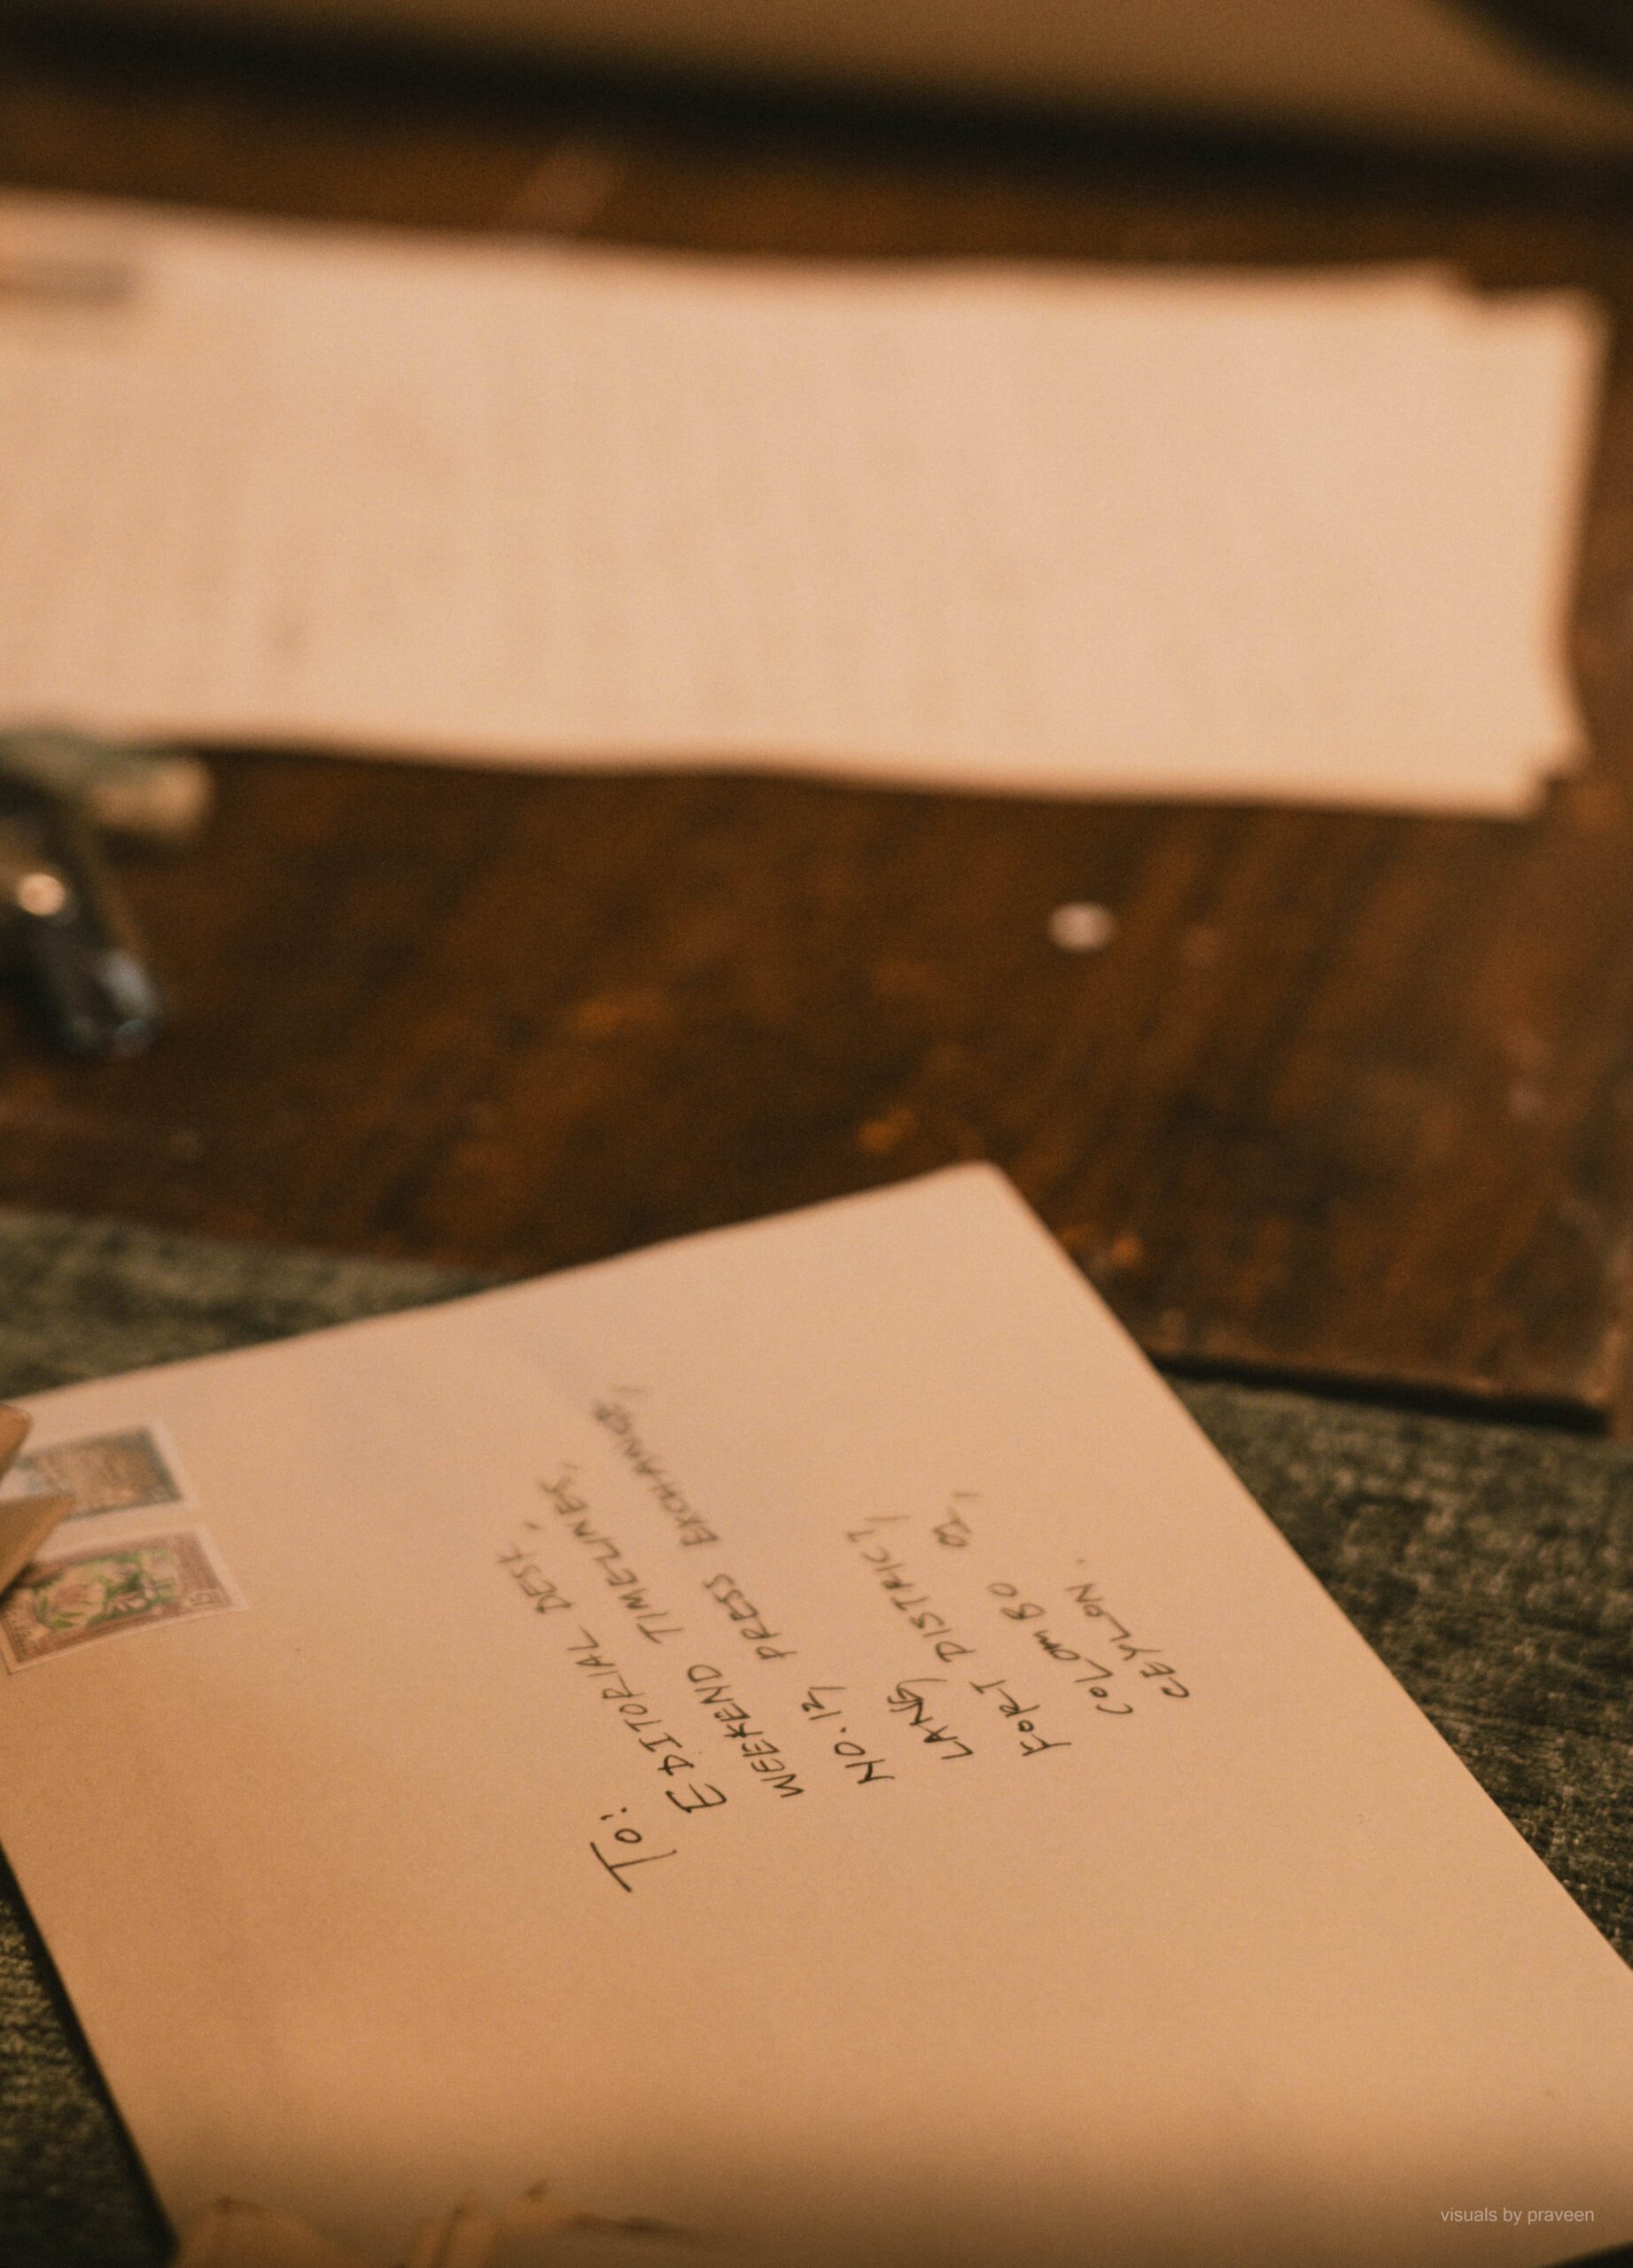 To:
EDITORIAL DESK,
WEEKEND TIMELINES,
NO. 12, PRESS EXCHANGE,
LANE,
FORT DISTRICT,
COLOMBO 02,
CEYLON.
15
visuals by praveen